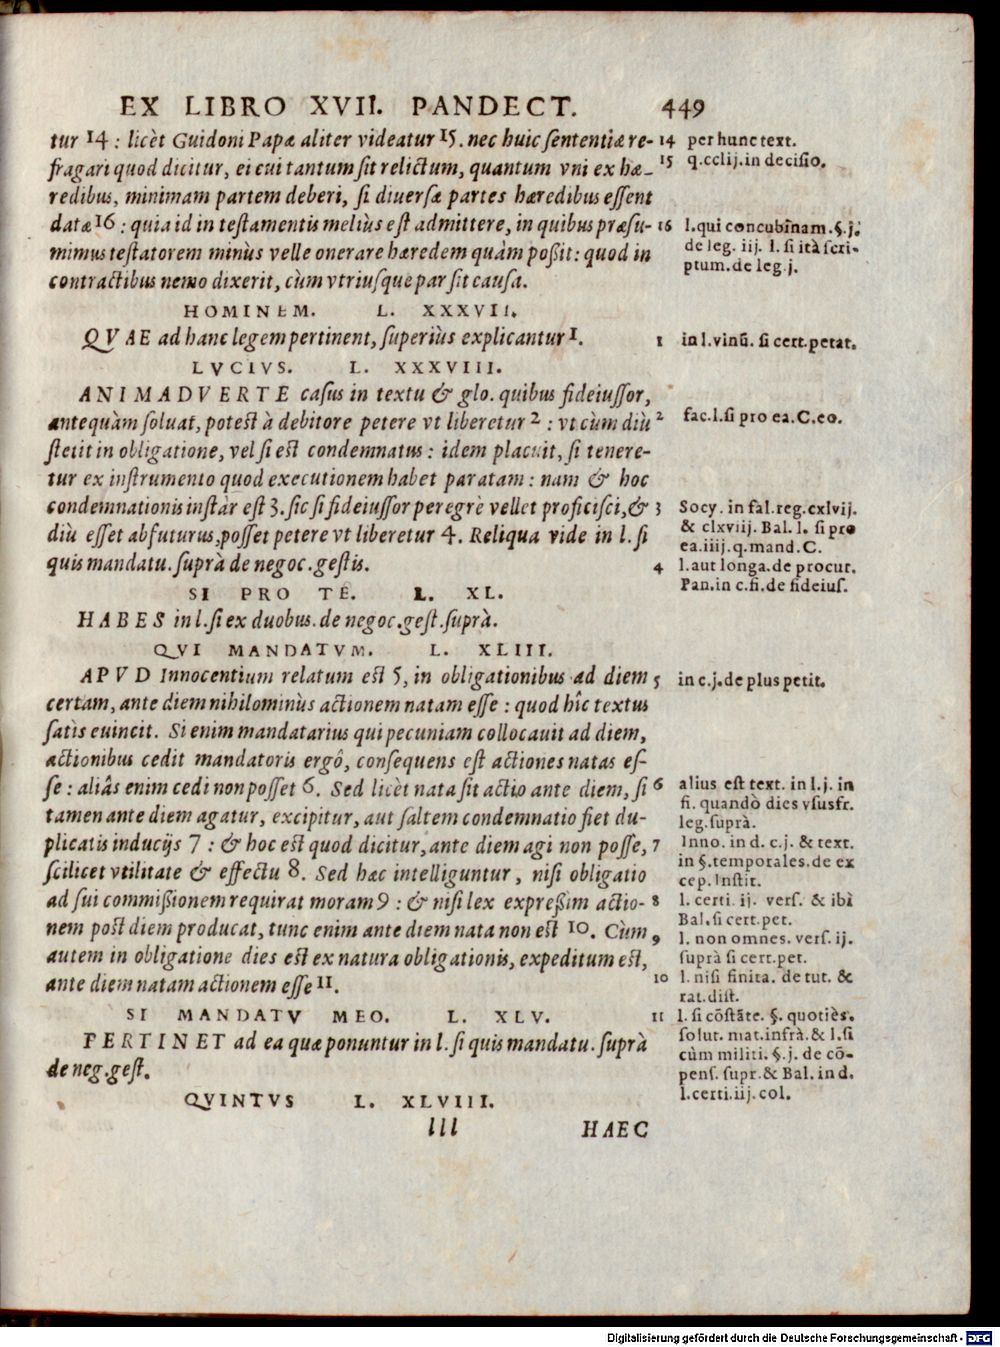 EX LIBRO XVII. PANDECT. 449
tur 14 : licèt Guidoni Papæ aliter videatur 15. nec huic sententiæ re-
fragari quod dicitur, ei cui tantum sit relictum, quantum vni ex hæ-
redibus, minimam partem deberi, si diuersæ partes hæredibus essent
datæ 16 : quia id in testamentis meliùs est admittere, in quibus præsu-
mimus testatorem minùs velle onerare hæredem quàm possit: quod in
contractibus nemo dixerit, cùm vtriusque par sit causa.
HOMINEM. L. XXXVII.
QVAE ad hanc legem pertinent, superiùs explicantur 1.
LVCIVS. L. XXXVIII.
ANIMADVERTE casus in textu & glo. quibus fideiussor,
antequàm soluat, potest à debitore petere vt liberetur 2 : vt cùm diù
stetit in obligatione, vel si est condemnatus : idem placuit, si tenere-
tur ex instrumento quod executionem habet paratam : nam & hoc
condemnationis instàr est 3. sic si fideiussor peregrè vellet proficisci, &
diù esset abfuturus, posset petere vt liberetur 4. Reliqua vide in l. si
quis mandatu. suprà de negoc. gestis.
SI PRO TE. L. XL.
HABES in l. si ex duobus. de negoc. gest. suprà.
QVI MANDATVM. L. XLIII.
APVD Innocentium relatum est 5, in obligationibus ad diem
certam, ante diem nihilominùs actionem natam esse : quod hîc textus
satis euincit. Si enim mandatarius qui pecuniam collocauit ad diem,
actionibus cedit mandatoris ergô, consequens est actiones natas es-
se : aliâs enim cedi non posset 6. Sed licèt nata sit actio ante diem, si
tamen ante diem agatur, excipitur, aut saltem condemnatio fiet du-
plicatis inducijs 7 : & hoc est quod dicitur, ante diem agi non posse,
scilicet vtilitate & effectu 8. Sed hæc intelliguntur, nisi obligatio
ad sui commissionem requirat moram 9 : & nisi lex expressim actio-
nem post diem producat, tunc enim ante diem nata non est 10. Cùm
autem in obligatione dies est ex natura obligationis, expeditum est,
ante diem natam actionem esse 11.
SI MANDATV MEO. L. XLV.
PERTINET ad ea quæ ponuntur in l. si quis mandatu. suprà
de neg. gest.
QVINTVS L. XLVIII.
lll HAEC
14 per hunc text.
15 q.cclij. in decisio.
16 l. qui concubinam. §. j.
de leg. iij. l. si ità scri-
ptum. de leg j.
1 in l. vinũ. si cert. petat.
2 fac. l. si pro ea. C. eo.
3 Socy. in fal. reg. cxlvij.
& clxviij. Bal. l. si pro
ea. iiij. q. mand. C.
4 l. aut longa. de procur.
Pan. in c. fi. de fideius.
5 in c. j. de plus petit.
6 alius est text. in l. j. in
fi. quandò dies vsusfr.
leg. suprà.
7 Inno. in d. c. j. & text.
in §. temporales. de ex
cep. Instit.
8 l. certi. ij. vers. & ibi
Bal. si cert. pet.
9 l. non omnes. vers. ij.
suprà si cert. pet.
10 l. nisi finita. de tut. &
rat. dist.
11 l. si cõstãte. §. quotiès.
solut. mat. infrà. & l. si
cùm militi. §. j. de cõ-
pens. supr. & Bal. in d.
l. certi. iij. col.
Digitalisierung gefördert durch die Deutsche Forschungsgemeinschaft - DFG